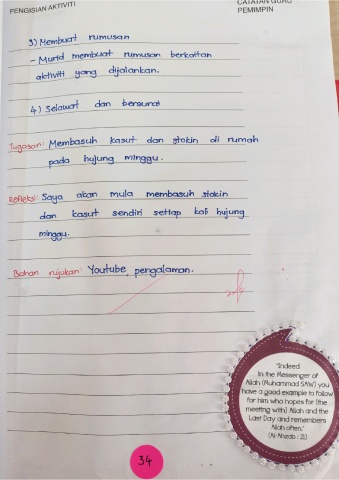 PENGISIAN AKTIVITI
CATATAN GURU
PEMIMPIN
3) Membuat rumusan
- Murid membuat rumusan berkaitan
aktiviti yang dijalankan.
4) Selawat dan bersurai
Tugasan: Membasuh kasut dan stokin di rumah
pada hujung minggu.
Refleksi: Saya akan mula membasuh stokin
dan kasut sendiri setiap kali hujung
minggu.
Bahan rujukan: Youtube, pengalaman.
"Indeed
in the Messenger of
Allah (Muhammad SAW) you
have a good example to follow
for him who hopes for (the
meeting with) Allah and the
Last Day and remembers
Allah often."
(Al-Ahzab : 21)
34